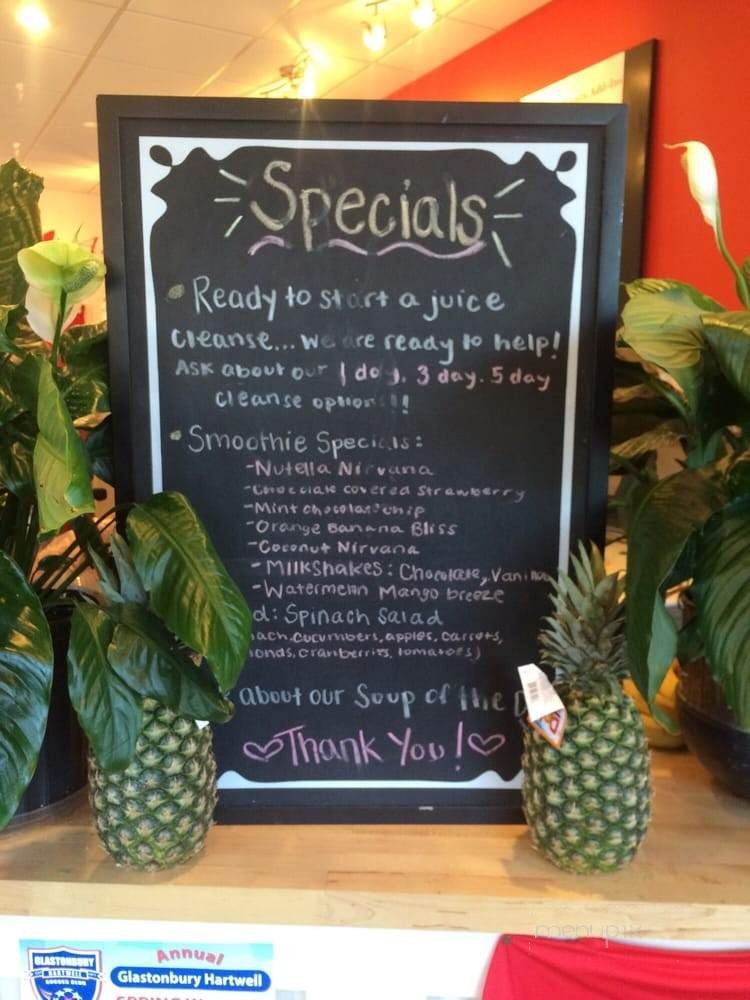 Specials
Ready to start a juice
cleanse... we are ready to help!
Ask about our 1 day, 3 day, 5 day
cleanse options!!
Smoothie Specials:
-Nutella Nirvana
-Chocolate covered strawberry
-Mint chocolate chip
-Orange Banana Bliss
-Coconut Nirvana
-MilkShakes: Chocolate, Vanilla
-Watermelon Mango breeze
d: Spinach Salad
ach, cucumbers, apples, carrots,
onds, cranberries, tomatoes)
about our Soup of the D
Thank You!
Annual
GLASTONBURY
HARTWELL
SOCCER CLUB
Glastonbury Hartwell
menupix